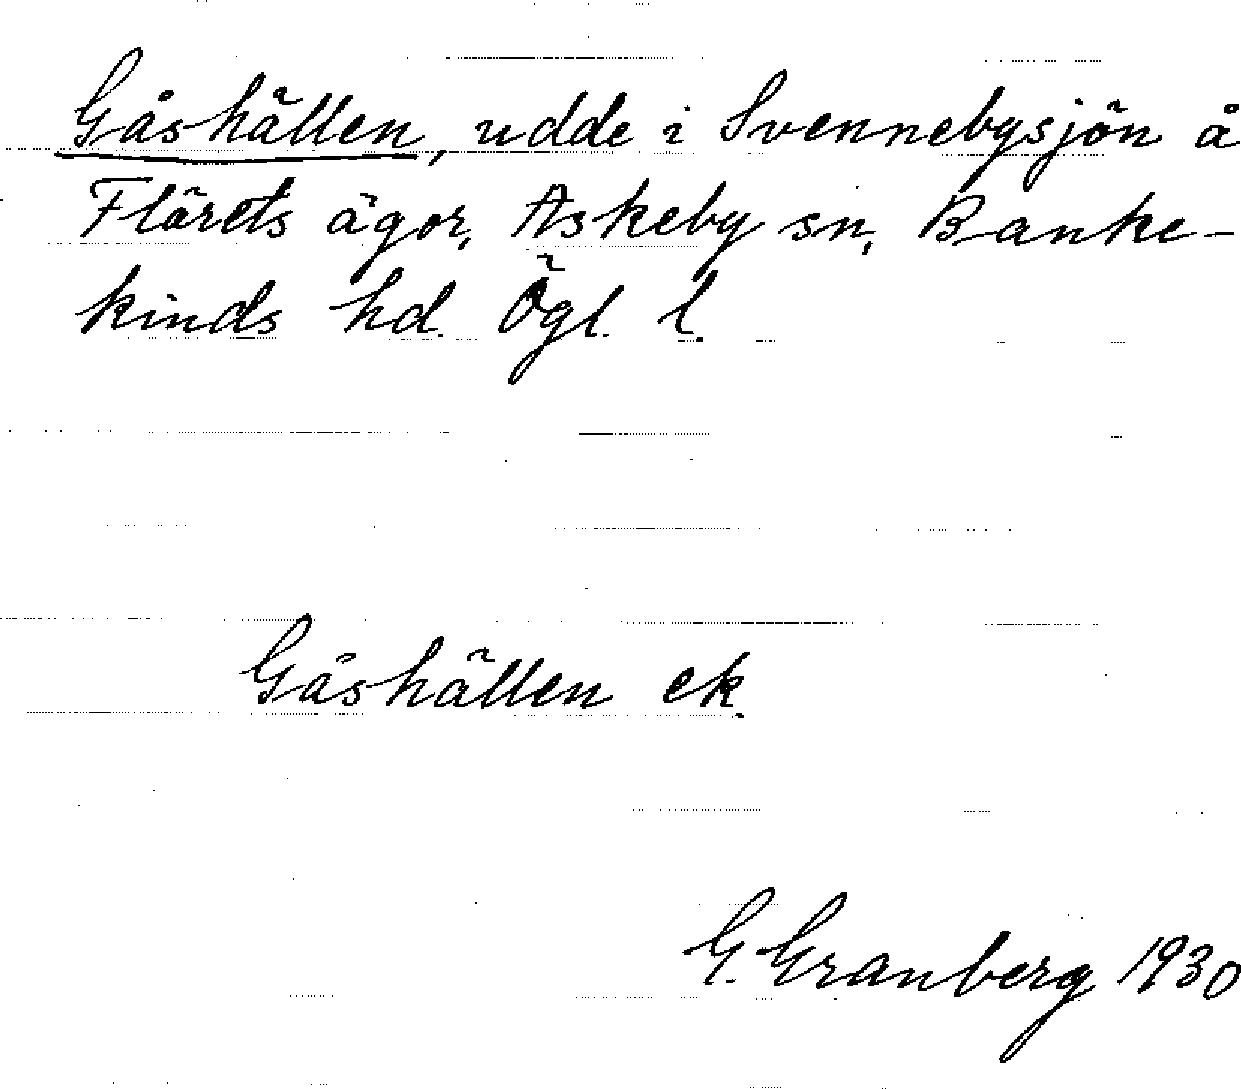 Gåshällen, udde i Svennebysjön å
Flärets ägor, Askeby sn, Banke-
kinds hd. Ögl. l.
Gåshällen ek.
G. Granberg 1930